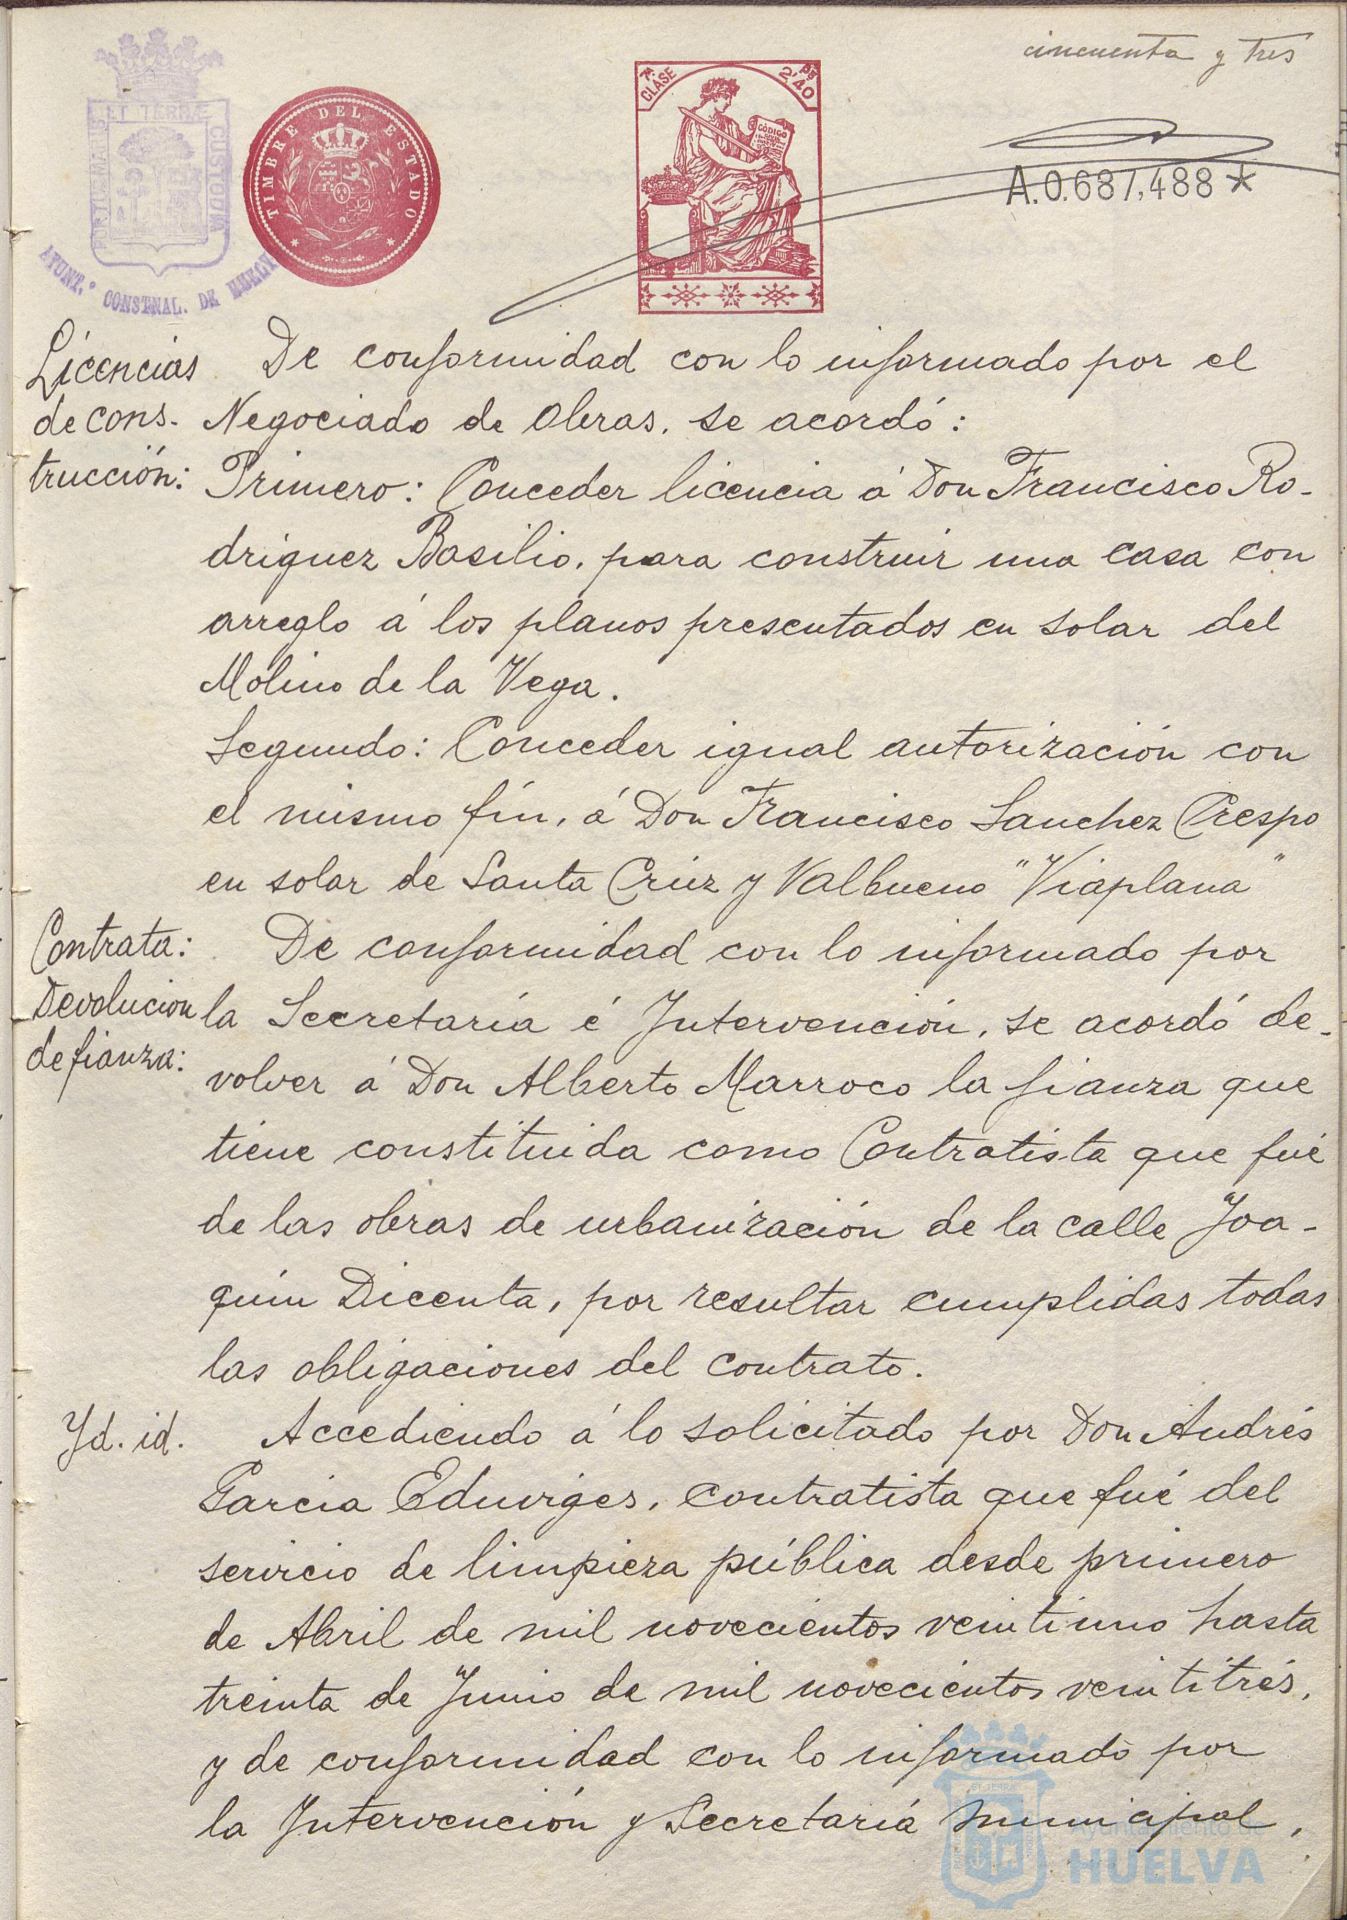 cincuenta y tres
PORTUS MARIS ET TERRÆ CUSTODIA
AYUNT.º CONSTNAL. DE HUELVA
TIMBRE DEL ESTADO
7ª CLASE
2'40 PS
CÓDIGO
A.0.687,488*
Licencias
de cons-
trucción:
De conformidad con lo informado por el
Negociado de Obras, se acordó:
Primero: Conceder licencia á Don Francisco Ro-
driguez Basilio, para construir una casa con
arreglo á los planos presentados en solar del
Molino de la Vega.
Segundo: Conceder igual autorización con
el mismo fín, á Don Francisco Sanchez Crespo
en solar de Santa Cruz y Valbueno "Viaplana"
Contrata:
Devolucion
de fianza:
De conformidad con lo informado por
la Secretaría é Intervención, se acordó de-
volver á Don Alberto Marroco la fianza que
tiene constituida como Contratista que fué
de las obras de urbanización de la calle Joa-
quín Dicenta, por resultar cumplidas todas
las obligaciones del contrato.
Yd. id.
Accediendo á lo solicitado por Don Andrés
Garcia Eduvigez, contratista que fué del
servicio de limpieza pública desde primero
de Abril de mil novecientos veintiuno hasta
treinta de Junio de mil novecientos veintitrés,
y de conformidad con lo informado por
la Intervención y Secretaría municipal,
Ayuntamiento de
HUELVA